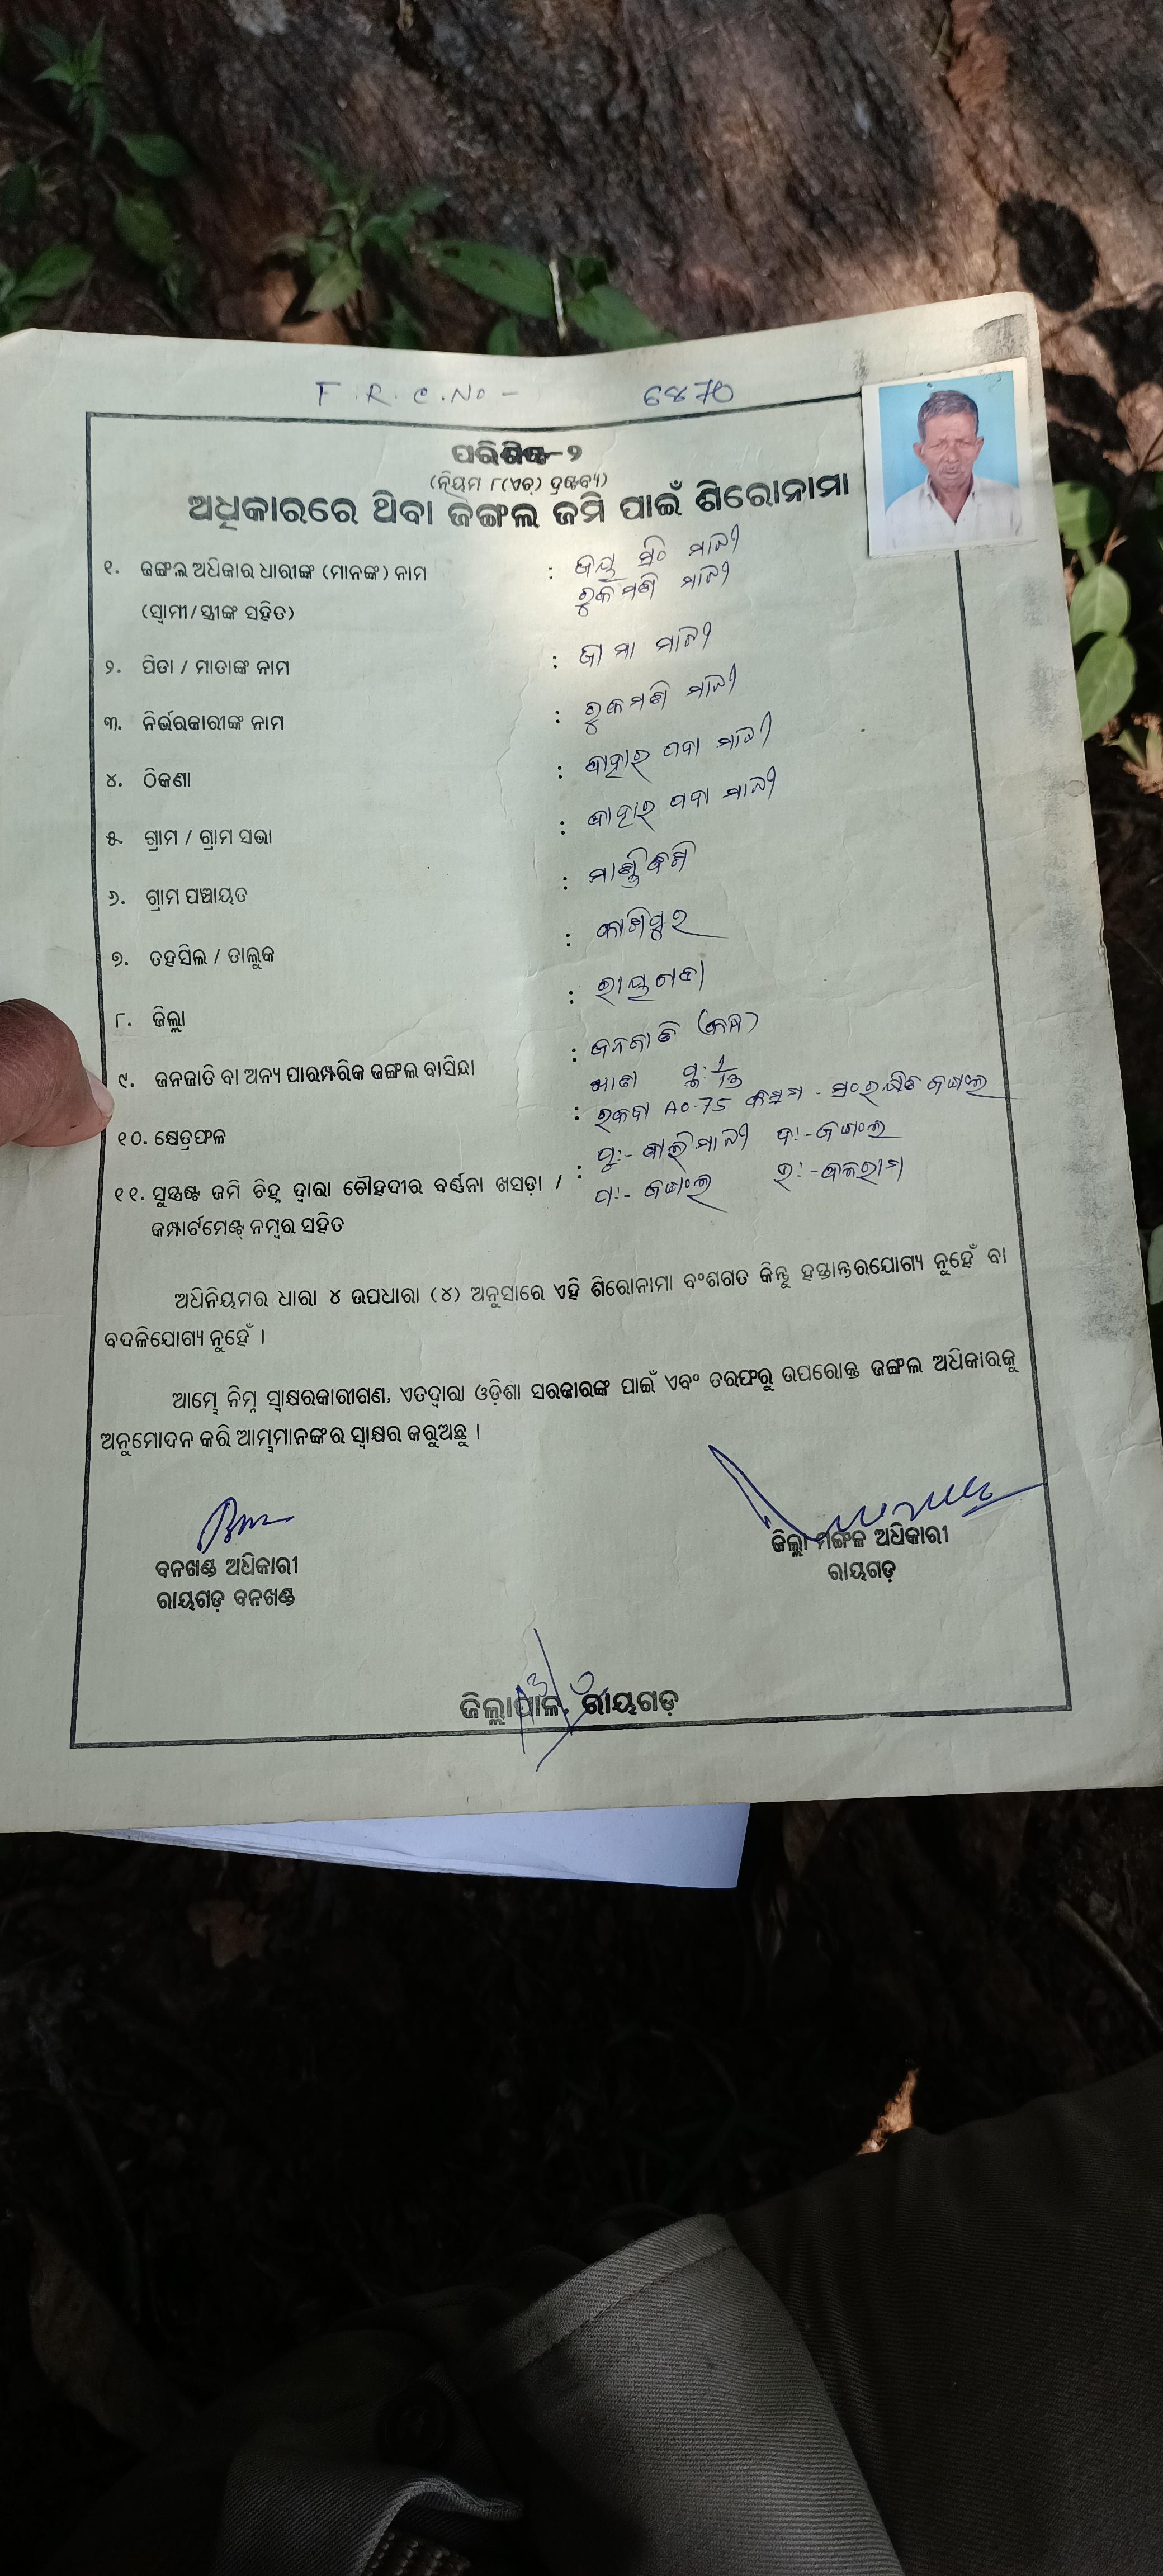 F.R.C.No - 6870
ପରିଶିଷ୍ଟ-୨
(ନିୟମ ୮(ଏଚ୍) ଦ୍ରଷ୍ଟବ୍ୟ)
ଅଧିକାରରେ ଥିବା ଜଙ୍ଗଲ ଜମି ପାଇଁ ଶିରୋନାମା
୧. ଜଙ୍ଗଲ ଅଧିକାର ଧାରୀଙ୍କ (ମାନଙ୍କ) ନାମ : ଜୟ ସିଂ ମାଝୀ
(ସ୍ୱାମୀ/ସ୍ତ୍ରୀଙ୍କ ସହିତ) ରୁକମଣି ମାଝୀ
୨. ପିତା / ମାତାଙ୍କ ନାମ : ଜୀମା ମାଝୀ
୩. ନିର୍ଭରକାରୀଙ୍କ ନାମ : ରୁକମଣି ମାଝୀ
୪. ଠିକଣା :
୫. ଗ୍ରାମ / ଗ୍ରାମ ସଭା :
୬. ଗ୍ରାମ ପଞ୍ଚାୟତ :
୭. ତହସିଲ / ତାଲୁକ : କାଶିପୁର
୮. ଜିଲ୍ଲା : ରାୟଗଡା
୯. ଜନଜାତି ବା ଅନ୍ୟ ପାରମ୍ପରିକ ଜଙ୍ଗଲ ବାସିନ୍ଦା : ଜନଜାତି (କନ୍ଧ)
୧୦. କ୍ଷେତ୍ରଫଳ : ରକବା A0.75
୧୧. ସୁସ୍ପଷ୍ଟ ଜମି ଚିହ୍ନ ଦ୍ୱାରା ଚୌହଦୀର ବର୍ଣ୍ଣନା ଖସଡ଼ା / :
କମ୍ପାର୍ଟମେଣ୍ଟ୍ ନମ୍ବର ସହିତ
ଅଧିନିୟମର ଧାରା ୪ ଉପଧାରା (୪) ଅନୁସାରେ ଏହି ଶିରୋନାମା ବଂଶଗତ କିନ୍ତୁ ହସ୍ତାନ୍ତରଯୋଗ୍ୟ ନୁହେଁ ବା
ବଦଳିଯୋଗ୍ୟ ନୁହେଁ ।
ଆମ୍ଭେ ନିମ୍ନ ସ୍ୱାକ୍ଷରକାରୀଗଣ, ଏତଦ୍ୱାରା ଓଡ଼ିଶା ସରକାରଙ୍କ ପାଇଁ ଏବଂ ତରଫରୁ ଉପରୋକ୍ତ ଜଙ୍ଗଲ ଅଧିକାରକୁ
ଅନୁମୋଦନ କରି ଆମ୍ଭମାନଙ୍କର ସ୍ୱାକ୍ଷର କରୁଅଛୁ ।
ବନଖଣ୍ଡ ଅଧିକାରୀ
ରାୟଗଡ଼ ବନଖଣ୍ଡ
ଜିଲ୍ଲା ମଙ୍ଗଳ ଅଧିକାରୀ
ରାୟଗଡ଼
ଜିଲ୍ଲାପାଳ, ରାୟଗଡ଼